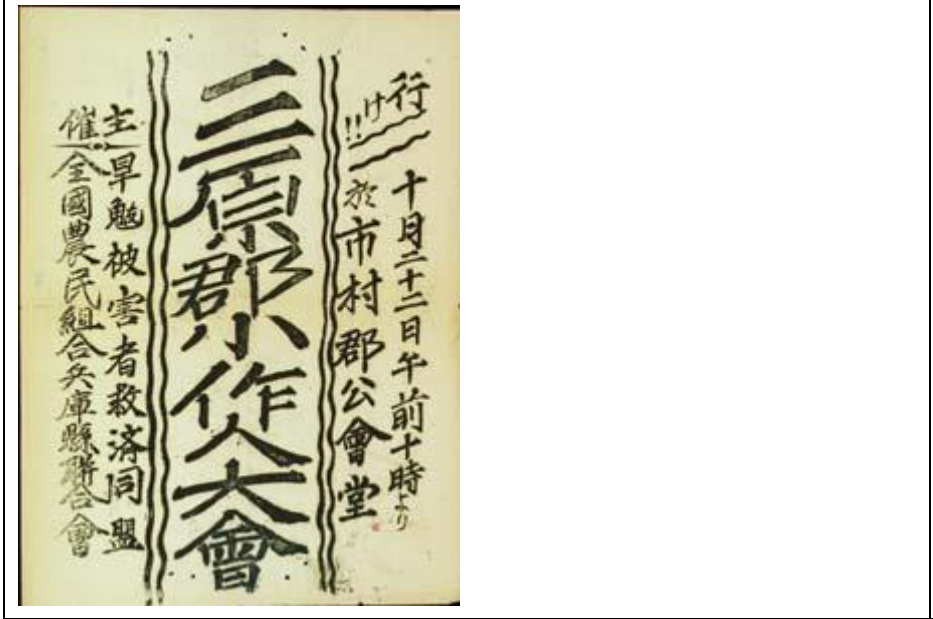 行け!!
十月二十二日午前十時より
於市村郡公會堂
三原郡小作人大會
主催
旱魃被害者救済同盟
全國農民組合兵庫縣聯合會